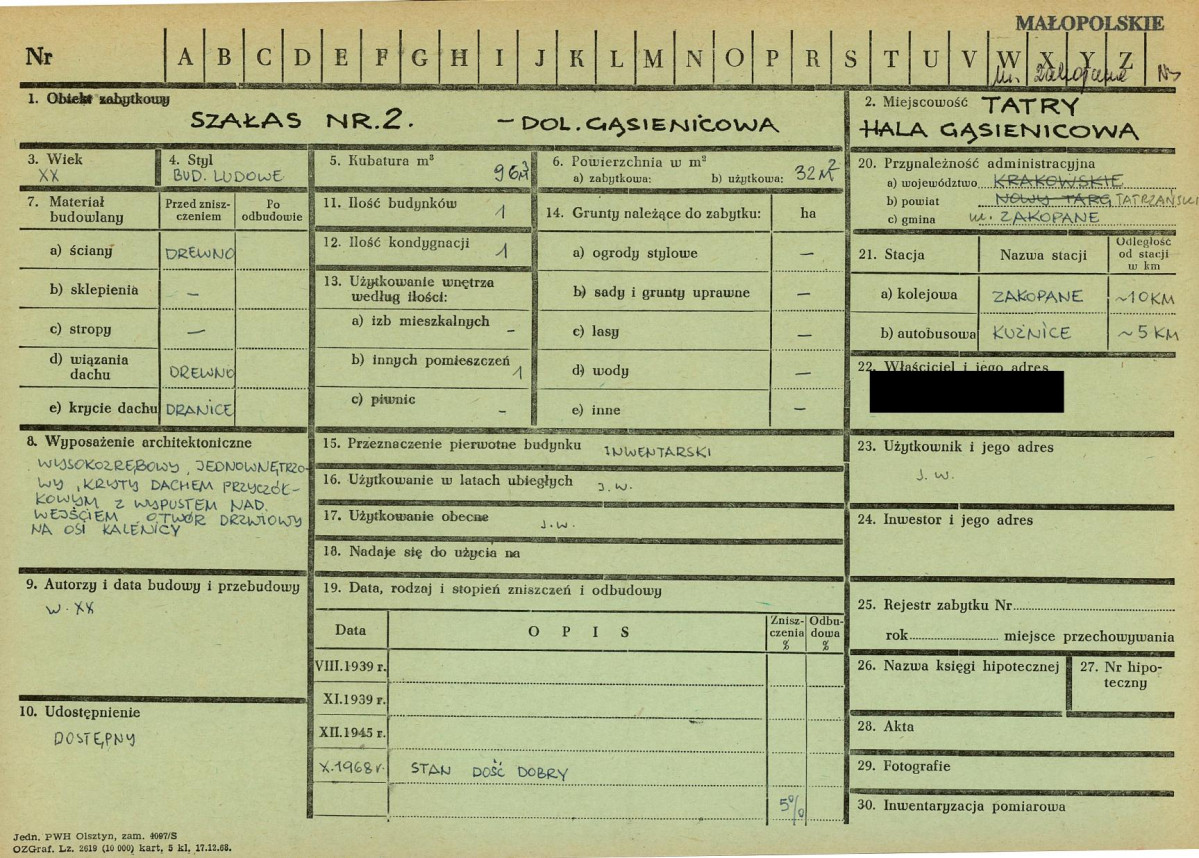 MAŁOPOLSKIE
Nr A B C D E F G H I J K L M N O P R S T U V W X Y Z
m. Zakopane
1. Obiekt zabytkowy
SZAŁAS NR.2. – DOL. GĄSIENICOWA
2. Miejscowość TATRY
HALA GĄSIENICOWA
3. Wiek
XX
4. Styl
BUD. LUDOWE
5. Kubatura m³
96 M³
6. Powierzchnia w m²
a) zabytkowa: b) użytkowa: 32M²
20. Przynależność administracyjna
a) województwo KRAKOWSKIE
b) powiat NOWY TARG TATRZAŃSKI
c) gmina m. ZAKOPANE
7. Materiał budowlany
Przed zniszczeniem
Po odbudowie
a) ściany DREWNO
b) sklepienia –
c) stropy –
d) wiązania dachu DREWNO
e) krycie dachu DRANICE
11. Ilość budynków 1
12. Ilość kondygnacji 1
13. Użytkowanie wnętrza według ilości:
a) izb mieszkalnych –
b) innych pomieszczeń 1
c) piwnic –
14. Grunty należące do zabytku: ha
a) ogrody stylowe –
b) sady i grunty uprawne –
c) lasy –
d) wody –
e) inne –
21. Stacja Nazwa stacji Odległość od stacji w km
a) kolejowa ZAKOPANE ~10 KM
b) autobusowa KUŹNICE ~5 KM
22. Właściciel i jego adres
8. Wyposażenie architektoniczne
WYSOKOZRĘBOWY, JEDNOWNĘTRZO-
WY, KRYTY DACHEM PRZYCZÓŁ-
KOWYM Z WYPUSTEM NAD
WEJŚCIEM OTWÓR DRZWIOWY
NA OSI KALENICY
15. Przeznaczenie pierwotne budynku INWENTARSKI
16. Użytkowanie w latach ubiegłych J.W.
17. Użytkowanie obecne J.W.
18. Nadaje się do użycia na
23. Użytkownik i jego adres
J. W.
24. Inwestor i jego adres
9. Autorzy i data budowy i przebudowy
W. XX
19. Data, rodzaj i stopień zniszczeń i odbudowy
Data OPIS Zniszczenia % Odbudowa %
VIII.1939 r.
XI.1939 r.
XII.1945 r.
X.1968 r. STAN DOŚĆ DOBRY
5%
25. Rejestr zabytku Nr
rok miejsce przechowywania
26. Nazwa księgi hipotecznej
27. Nr hipoteczny
28. Akta
29. Fotografie
30. Inwentaryzacja pomiarowa
10. Udostępnienie
DOSTĘPNY
Jedn. PWH Olsztyn, zam. 4097/S
OZGraf. Lz. 2619 (10 000) kart, 5 kl, 17.12.68.